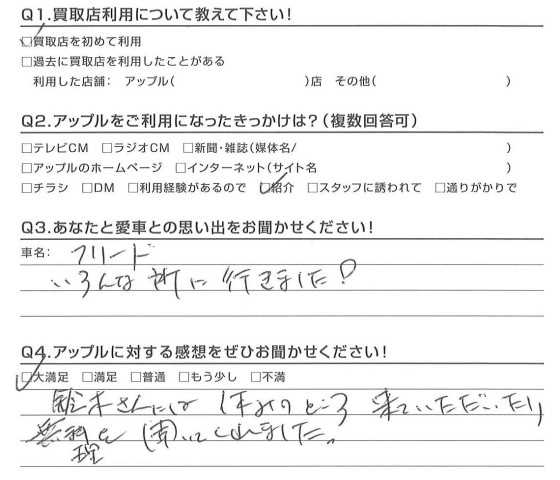 Q1.買取店利用について教えて下さい!
□買取店を初めて利用
□過去に買取店を利用したことがある
利用した店舗: アップル( )店 その他( )
Q2.アップルをご利用になったきっかけは?(複数回答可)
□テレビCM □ラジオCM □新聞・雑誌(媒体名/ )
□アップルのホームページ □インターネット(サイト名 )
□チラシ □DM □利用経験があるので □紹介 □スタッフに誘われて □通りがかりで
Q3.あなたと愛車との思い出をお聞かせください!
車名: フリード
いろんな所に行きました!
Q4.アップルに対する感想をぜひお聞かせください!
□大満足 □満足 □普通 □もう少し □不満
鈴木さんには休みのところ来ていただいたり
無理を聞いてくれました。